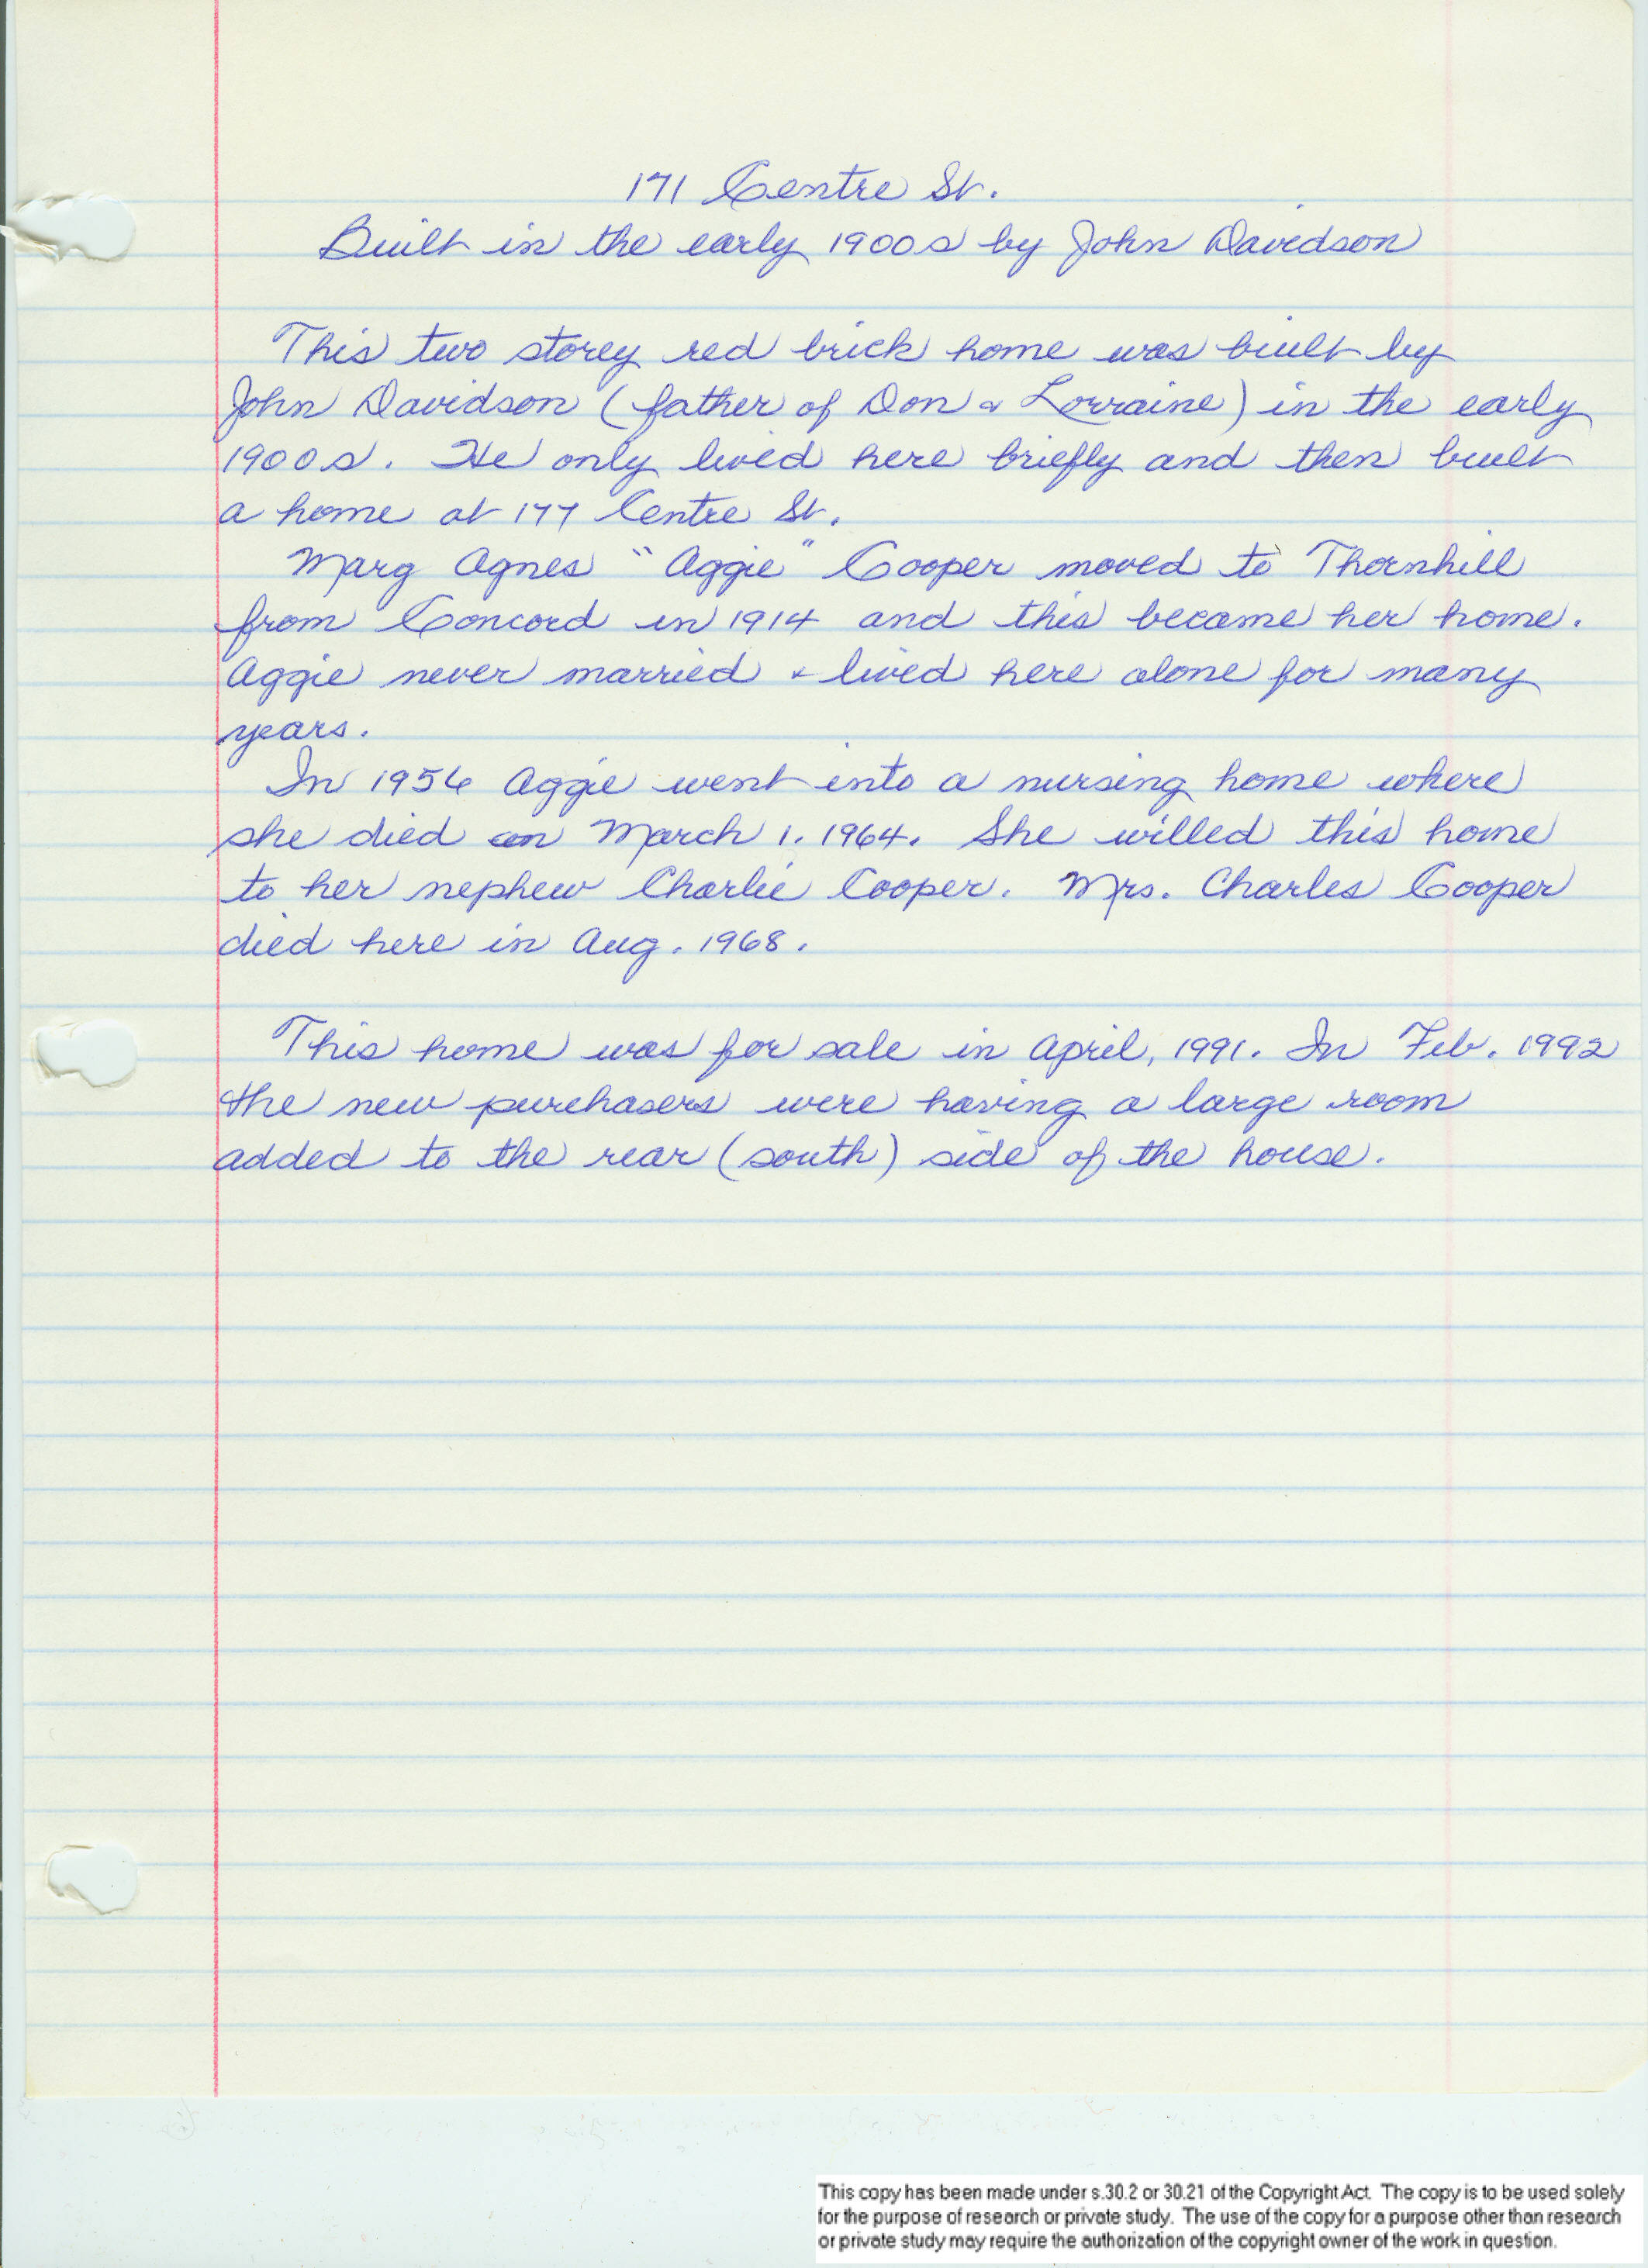 171 Centre St.
Built in the early 1900s by John Davidson
This two storey red brick home was built by
John Davidson (father of Don & Lorraine) in the early
1900s. He only lived here briefly and then built
a home at 177 Centre St.
Marg Agnes "Aggie" Cooper moved to Thornhill
from Concord in 1914 and this became her home.
Aggie never married & lived here alone for many
years.
In 1956 Aggie went into a nursing home where
she died on March 1. 1964. She willed this home
to her nephew Charlie Cooper. Mrs. Charles Cooper
died here in Aug. 1968.
This home was for sale in April, 1991. In Feb. 1992
the new purchasers were having a large room
added to the rear (south) side of the house.
This copy has been made under s.30.2 or 30.21 of the Copyright Act. The copy is to be used solely
for the purpose of research or private study. The use of the copy for a purpose other than research
or private study may require the authorization of the copyright owner of the work in question.